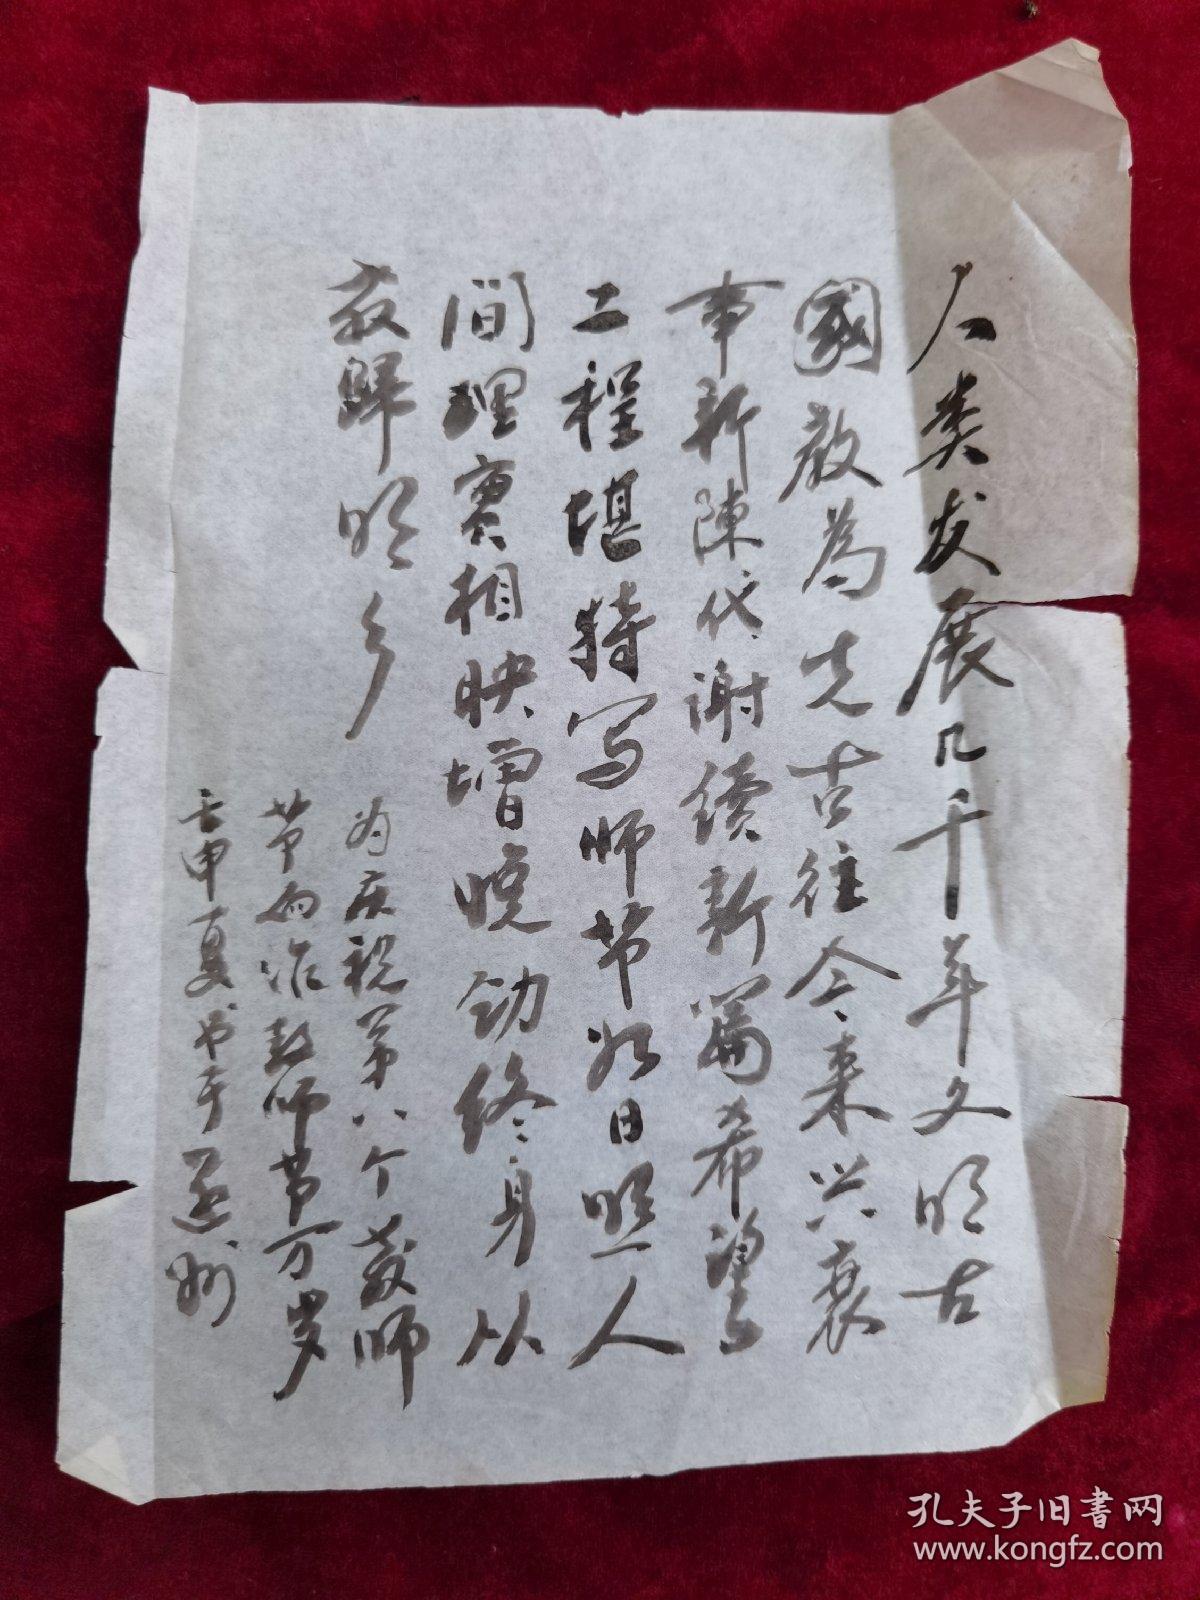 人类发展几千年文明古
國教為先古往今来兴衰
事新陳代谢續新篇希望
工程堪特写师节如日照人
间理实相映增晚韵终身从
教歸明乡
为庆祝第八个教师
节而作教师节万岁
壬申夏书于遂州
孔夫子旧书网
www.kongfz.com